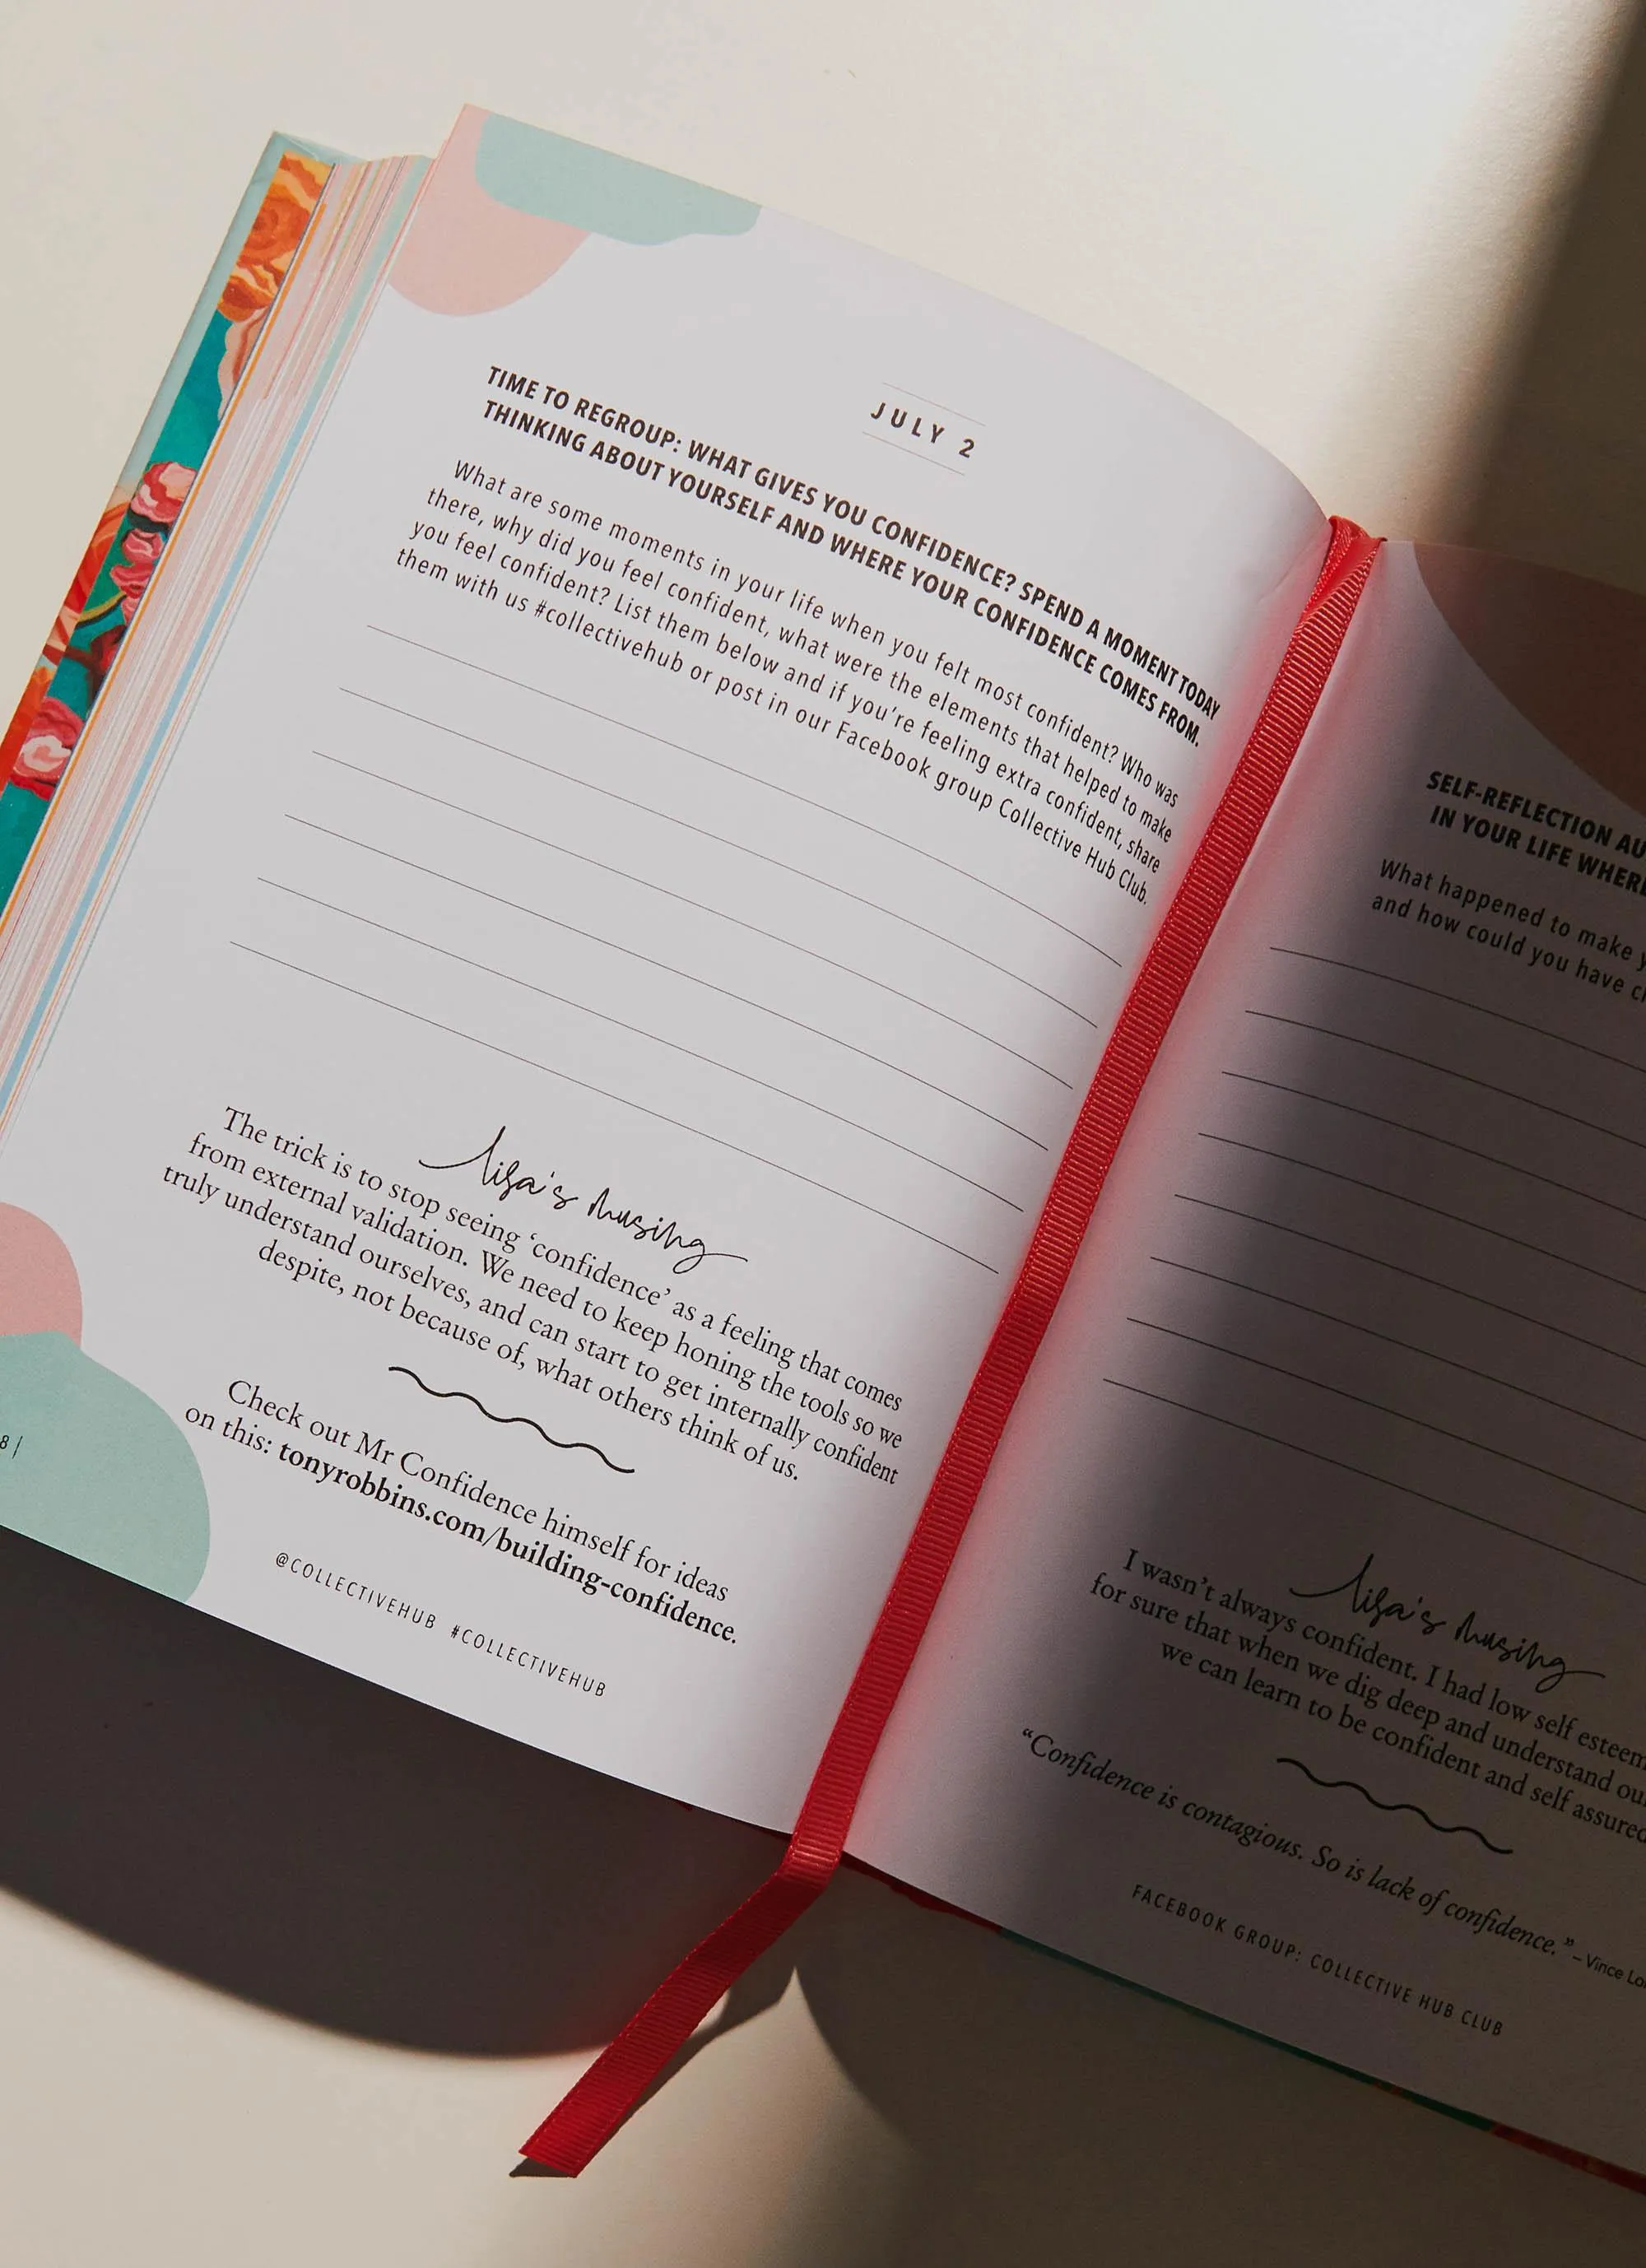 JULY 2
TIME TO REGROUP: WHAT GIVES YOU CONFIDENCE? SPEND A MOMENT TODAY
THINKING ABOUT YOURSELF AND WHERE YOUR CONFIDENCE COMES FROM.
What are some moments in your life when you felt most confident? Who was
there, why did you feel confident, what were the elements that helped to make
you feel confident? List them below and if you're feeling extra confident, share
them with us #collectivehub or post in our Facebook group Collective Hub Club.
lisa's musing
The trick is to stop seeing ‘confidence’ as a feeling that comes
from external validation. We need to keep honing the tools so we
truly understand ourselves, and can start to get internally confident
despite, not because of, what others think of us.
Check out Mr Confidence himself for ideas
on this: tonyrobbins.com/building-confidence.
@COLLECTIVEHUB #COLLECTIVEHUB
8 |
SELF-REFLECTION
IN YOUR LIFE
What happened to make
and how could you have
lisa's musing
I wasn't always confident. I had low self esteem
for sure that when we dig deep and understand
we can learn to be confident and self assured
“Confidence is contagious. So is lack of confidence.” – Vince
FACEBOOK GROUP: COLLECTIVE HUB CLUB